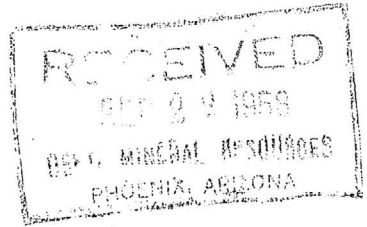 RECEIVED
SEP 2 1969
DEPT. MINERAL RESOURCES
PHOENIX, ARIZONA